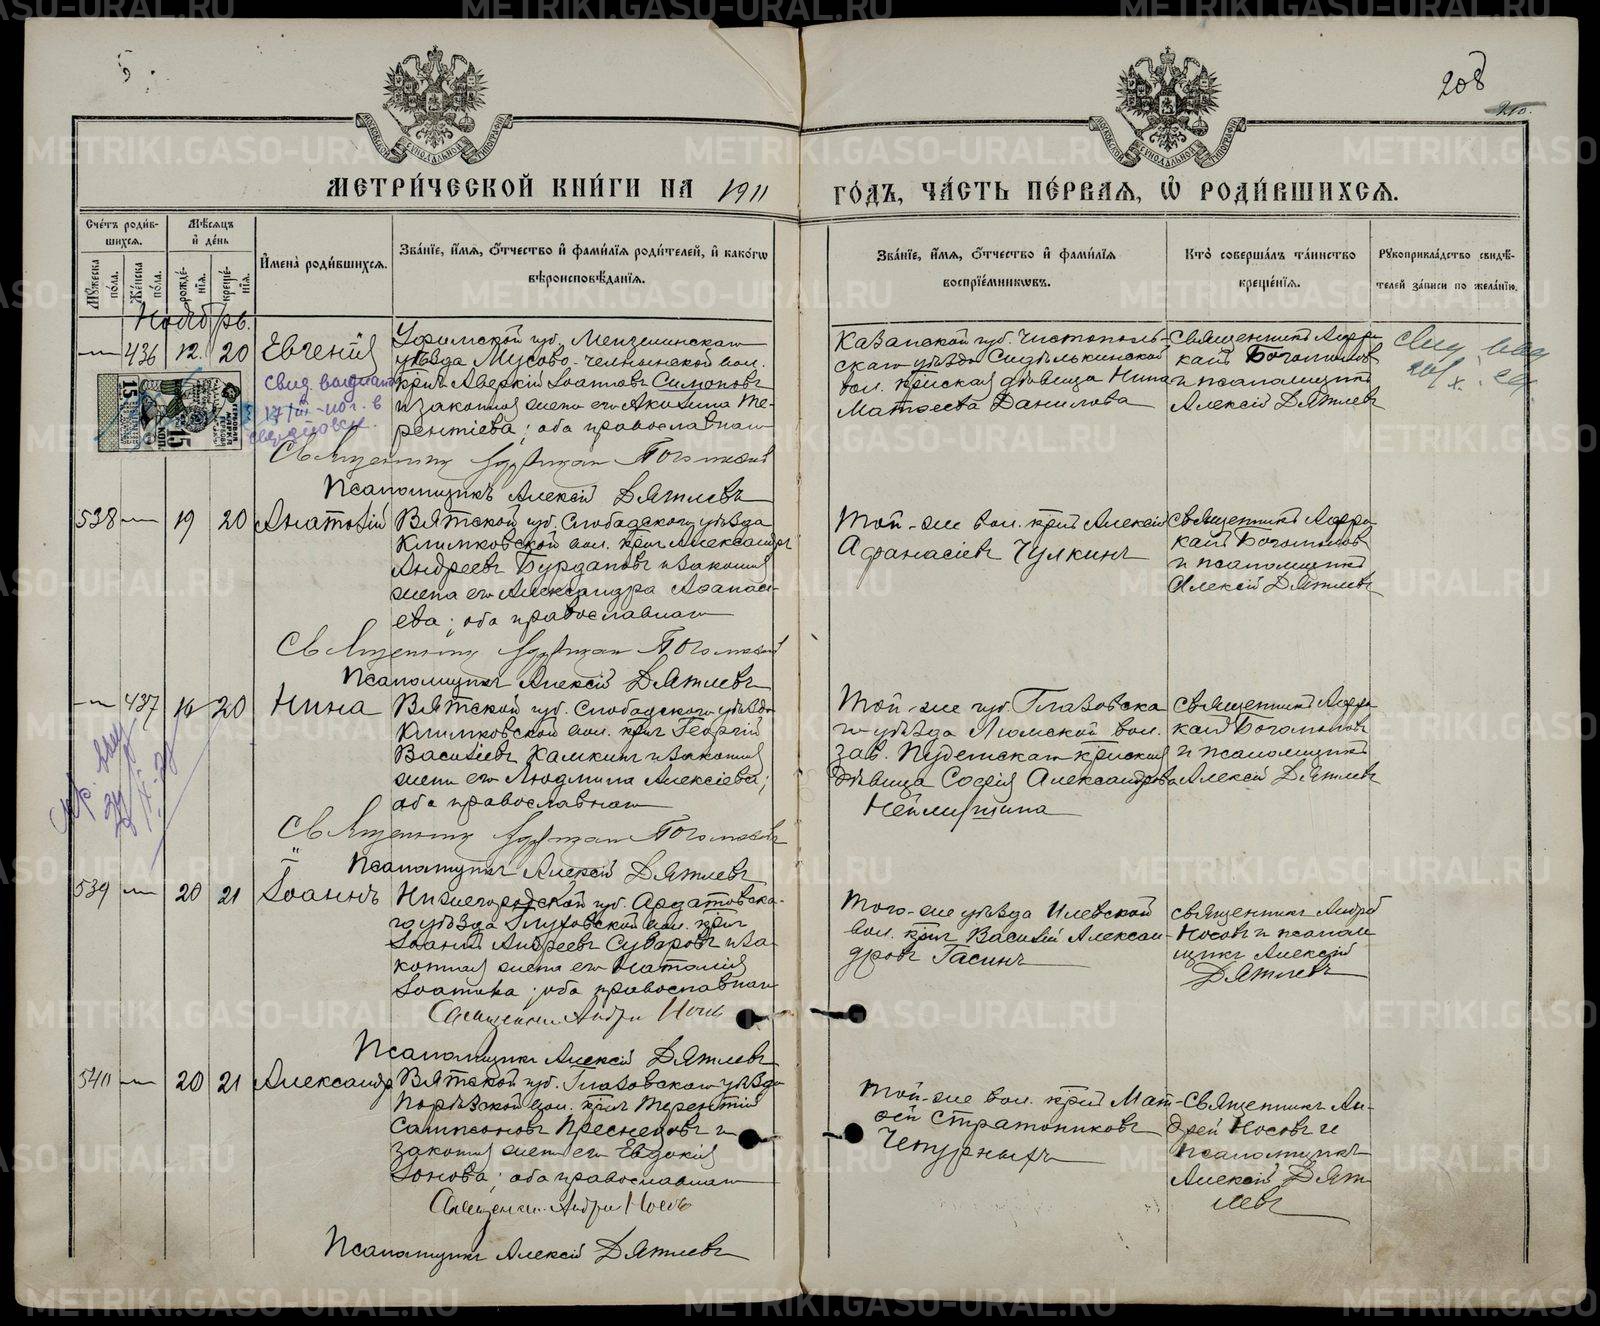 208
МЕТРИ́ЧЕСКОЙ КНИ́ГИ НА 1911 ГО́ДЪ, ЧА́СТЬ ПЕ́РВАЯ, Ѡ҆ РОДИ́ВШИХСЯ.
Счетъ роди́вшихся.
Му́жеска по́ла.
Же́нска по́ла.
Мѣ́сяцъ и҆ де́нь
рожде́нїя.
креще́нїя.
И҆мена̀ роди́вшихся.
Зва́нїе, и҆́мя, ѻ҆́тчество и҆ фами́лїя роди́телей, и҆ како́гѡ вѣроисповѣ́данїя.
Зва́нїе, и҆́мя, ѻ҆́тчество и҆ фами́лїя воспрїе́мникѡвъ.
Кто̀ соверша́лъ та́инство креще́нїя.
Рꙋкоприкла́дство свидѣ́телей за́писи по жела́нїю.
Ноябрь.
436 12. 20 Евгенія
Уфимской губ. Мензелинскаго
уѣзда Мусово-челнинской вол.
кр̃нъ Аверкій Іоанновъ Симоновъ
и законная жена его Акилина Те-
рентіева; оба православнаго
Священникъ
Псаломщикъ Алексій Дятлевъ
Казанской губ. Чистополь-
скаго уѣзда Сидѣлькинской
вол. кр̃нская дѣвица Нина
Матѳеева Данилова
Священникъ
Богомолов
и псаломщикъ
Алексій Дятлевъ
15
КОП
538 19 20 Анатолій
Вятской губ. Слободского уѣзда
Климковской вол. кр̃нъ Александръ
Андреевъ Бурдановъ и законная
жена его Александра Аѳанась-
ева; оба православнаго
Священникъ
Псаломщикъ Алексій Дятлевъ
Той-же вол. кр̃нъ Алексій
Афанасіевъ Чулкинъ
Священникъ
Богомолов
и псаломщикъ
Алексій Дятлевъ
437 16 20 Нина
Вятской губ. Слободского уѣзда
Климковской вол. кр̃нъ Георгій
Василіевъ Камкинъ и законная
жена его Людмила Алексіева;
оба православнаго
Священникъ
Псаломщикъ Алексій Дятлевъ
Той-же губ. Глазовска
го уѣзда Люмской вол.
зав. Пудемскаго кр̃нская
дѣвица Софія Александрова
Священникъ
Богомолов
и псаломщикъ
Алексій Дятлевъ
539 20 21 Іоаннъ
Нижегородской губ. Ардатовска-
го уѣзда Глуховской вол. кр̃нъ
Іоаннъ Андреевъ Суваровъ и за-
конная жена его Наталія
Іоаннова; оба православнаго
Священникъ Андрей Носовъ
Псаломщикъ Алексій Дятлевъ
Того-же уѣзда Илевской
вол. кр̃нъ Василій Алексан-
дровъ Гасинъ
Священникъ Андрей
Носовъ и псалом
щикъ Алексій
Дятлевъ
540 20 21 Александръ
Вятской губ. Глазовскаго уѣзда
Порѣзской вол. кр̃нъ Терентій
Сампсоновъ Пресненовъ и
законная жена его Евдокія
Іонова; оба православнаго
Священникъ Андрей Носовъ
Псаломщикъ Алексій Дятлевъ
Той-же вол. кр̃нъ Мат-
ѳей Стратониковъ
Чепурныхъ
Священникъ Ан-
дрей Носовъ и
псаломщикъ
Алексій Дят
левъ
METRIKI.GASO-URAL.RU